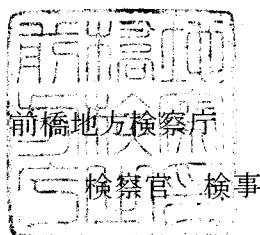 前橋地方検察庁
検察官　検事